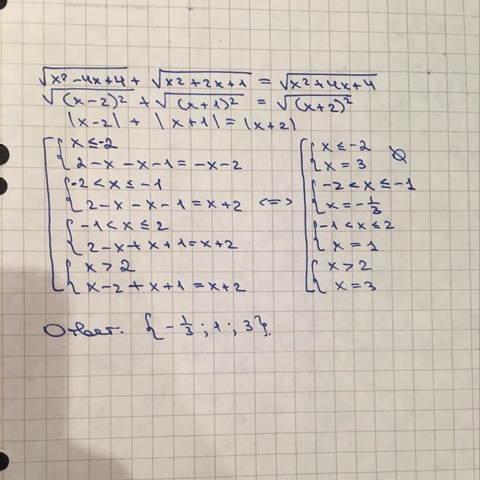 √(x² - 4x + 4) + √(x² + 2x + 1) = √(x² + 4x + 4)
√((x-2)²) + √((x+1)²) = √((x+2)²)
|x-2| + |x+1| = |x+2|
[ { x ≤ -2
2 - x - x - 1 = -x - 2
{ -2 < x ≤ -1
2 - x - x - 1 = x + 2
{ -1 < x ≤ 2
2 - x + x + 1 = x + 2
{ x > 2
x - 2 + x + 1 = x + 2
<=>
[ { x ≤ -2
x = 3 ∅
{ -2 < x ≤ -1
x = -1/3
{ -1 < x ≤ 2
x = 1
{ x > 2
x = 3
Ответ: {-1/3; 1; 3}.